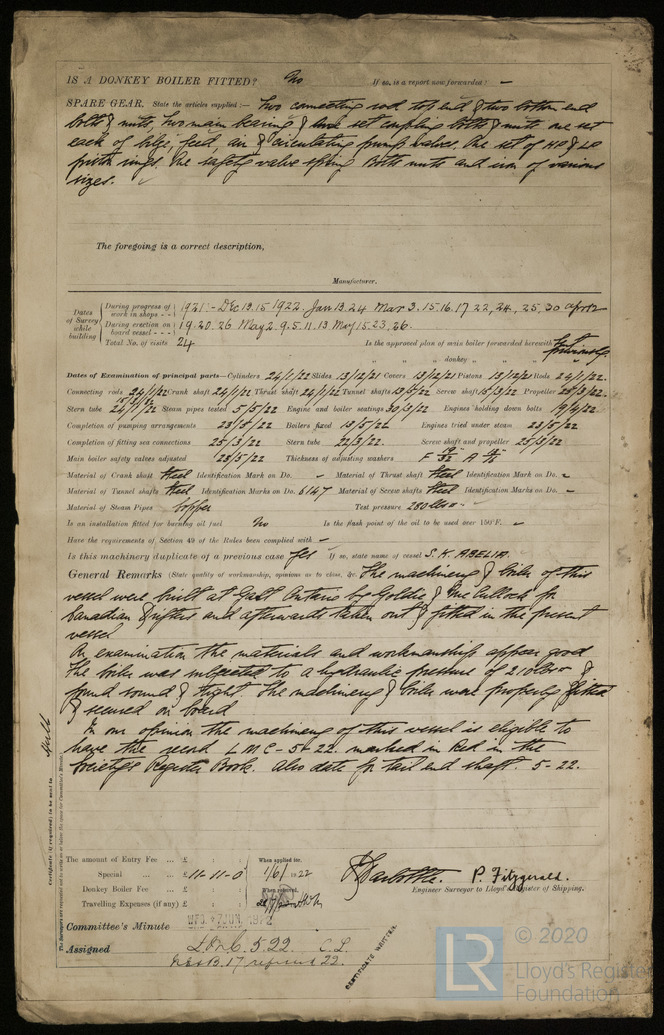 IS A DONKEY BOILER FITTED? No If so, is a report now forwarded? –
SPARE GEAR. State the articles supplied:— Two connecting rod top end & two bottom end
bolts & nuts, two main bearing & one set coupling bolts & nuts one set
each of bilge, feed, air & circulating pump valves. One set of HP & LP
piston rings. One safety valve spring Bolts nuts and iron of various
sizes.
The foregoing is a correct description,
Manufacturer.
Dates of Survey while building
During progress of work in shops - - 1921:- Dec 13.15 1922 Jan 13.24 Mar 3.15.16.17 22, 24, 25, 30 April 12
During erection on board vessel - - - 19.20.26 May 2.9.5.11.13 May 15.23,26.
Total No. of visits 24 Is the approved plan of main boiler forwarded herewith
" " " donkey " " "
Dates of Examination of principal parts—Cylinders 24/1/22 Slides 13/12/21 Covers 13/12/21 Pistons 13/12/21 Rods 24/1/22.
Connecting rods 24/1/22 Crank shaft 24/1/22 Thrust shaft 24/1/22 Tunnel shafts Screw shaft 15/3/22 Propeller
Stern tube 24/1/22 Steam pipes tested 5/5/22 Engine and boiler seatings 30/3/22 Engines holding down bolts 19/4/22
Completion of pumping arrangements 23/5/22 Boilers fixed Engines tried under steam 23/5/22
Completion of fitting sea connections 25/3/22 Stern tube 22/3/22. Screw shaft and propeller 25/3/22
Main boiler safety valves adjusted 23/5/22 Thickness of adjusting washers F A
Material of Crank shaft Steel Identification Mark on Do. – Material of Thrust shaft Steel Identification Mark on Do. –
Material of Tunnel shafts Steel Identification Marks on Do. 6147 Material of Screw shafts Steel Identification Marks on Do. –
Material of Steam Pipes Copper Test pressure 280 lbs
Is an installation fitted for burning oil fuel No Is the flash point of the oil to be used over 150°F. –
Have the requirements of Section 49 of the Rules been complied with –
Is this machinery duplicate of a previous case Yes If so, state name of vessel S.K. ABELIA.
General Remarks (State quality of workmanship, opinions as to class, &c. The machinery & boiler of this
vessel were built at Galt Ontario by Goldie & McCulloch for
Canadian Drifters and afterwards taken out & fitted in the present
vessel
On examination the materials and workmanship appear good
The boiler was subjected to a hydraulic pressure of 210 lbs &
found sound & tight. The machinery & boiler were properly fitted
& secured on board
In our opinion the machinery of this vessel is eligible to
have the record LMC-5-22. marked in Red in the
Society's Register Book. also date for tail end shaft. 5-22.
Certificate (if required) to be sent to Hull
The Surveyors are requested not to write on or below the space for Committee's Minute.
The amount of Entry Fee ... £ : :
Special ... £ 11-11-0
Donkey Boiler Fee ... £ : :
Travelling Expenses (if any) £ : :
When applied for, 1/6/1922
When received,
P. Fitzgerald.
Engineer Surveyor to Lloyd's Register of Shipping.
Committee's Minute WED. 7 JUN. 1922
Assigned L.M.C. 5.22. C.L.
CERTIFICATE WRITTEN.
LR © 2020
Lloyd's Register
Foundation